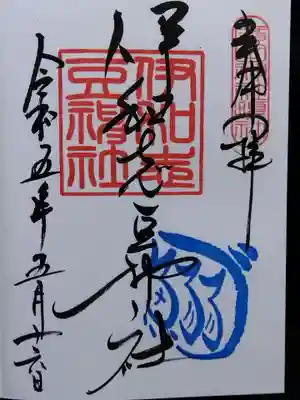 奉拝
伊和志豆神社
伊和志
豆神社
令和五年五月廿六日